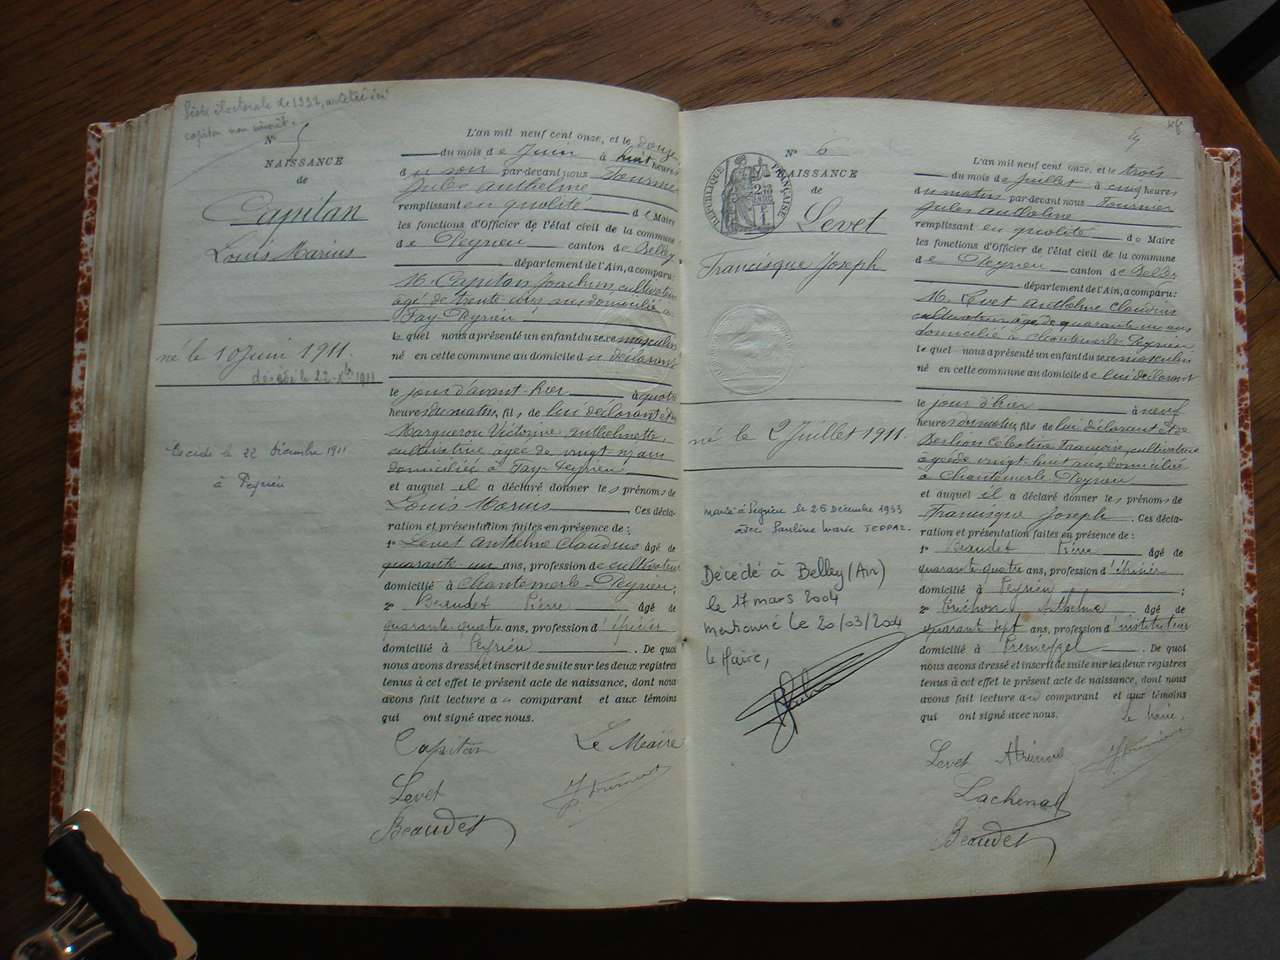 Liste électorale de
capitan non inscrit.
N° 5
NAISSANCE
de
Capitan
Louis Marius
né le 10 juin 1911.
décédé le 22 Xbre 1911
décédé le 22 Décembre 1911
à Peyrieu
L'an mil neuf cent onze, et le Douze
du mois de Juin à huit heures
du soir par-devant nous Fournier
Jules Anthelme
remplissant en qualité de Maire
les fonctions d'Officier de l'état civil de la commune
de Peyrieu canton de Belley
département de l'Ain, a comparu:
M. Capitan Joachim, cultivateur
âgé de trente ans domicilié à
Fay-Peyrieu
lequel nous a présenté un enfant du sexe masculin
né en cette commune au domicile du déclarant
le jour d'avant-hier à quatre
heures du matin, fils de lui déclarant et de
Margueron Victorine Anthelmette,
cultivatrice âgée de vingt ans
domiciliée à Fay-Peyrieu
et auquel il a déclaré donner les prénoms de
Louis Marius. Ces décla-
ration et présentation faites en présence de:
1° Levet Anthelme Claudius âgé de
quarante un ans, profession de cultivateur
domicilié à Chantemerle-Peyrieu;
2° Beaudet Pierre âgé de
quarante-quatre ans, profession d'épicier
domicilié à Peyrieu. De quoi
nous avons dressé et inscrit de suite sur les deux registres
tenus à cet effet le présent acte de naissance, dont nous
avons fait lecture au comparant et aux témoins
qui ont signé avec nous.
Capitan Le Maire
Levet J. Fournier
Beaudet
48
N° 6
NAISSANCE
de
Levet
Francisque Joseph
RÉPUBLIQUE FRANÇAISE
né le 2 Juillet 1911.
marié à Peyrieu le 26 Décembre 1933
avec Pauline Marie
Décédé à Belley (Ain)
le 17 mars 2004
mentionné le 20/03/2004
le Maire,
L'an mil neuf cent onze, et le trois
du mois de Juillet à cinq heures
du matin par-devant nous Fournier
Jules Anthelme
remplissant en qualité de Maire
les fonctions d'Officier de l'état civil de la commune
de Peyrieu canton de Belley
département de l'Ain, a comparu:
M. Levet Anthelme Claudius
cultivateur âgé de quarante un ans
domicilié à Chantemerle Peyrieu
lequel nous a présenté un enfant du sexe masculin
né en cette commune au domicile de lui déclarant
le jour d'hier à neuf
heures du matin, fils de lui déclarant et de
Berlioz Célestine Francine, cultivatrice
âgée de vingt huit ans, domiciliée
à Chantemerle Peyrieu
et auquel il a déclaré donner les prénoms de
Francisque Joseph. Ces décla-
ration et présentation faites en présence de:
1° Beaudet Pierre âgé de
quarante quatre ans, profession d'épicier
domicilié à Peyrieu;
2° Anthelme âgé de
quarant sept ans, profession d'instituteur
domicilié à Prémeyzel. De quoi
nous avons dressé et inscrit de suite sur les deux registres
tenus à cet effet le présent acte de naissance, dont nous
avons fait lecture au comparant et aux témoins
qui ont signé avec nous.
le Maire,
Levet J. Fournier
Lachenal
Beaudet